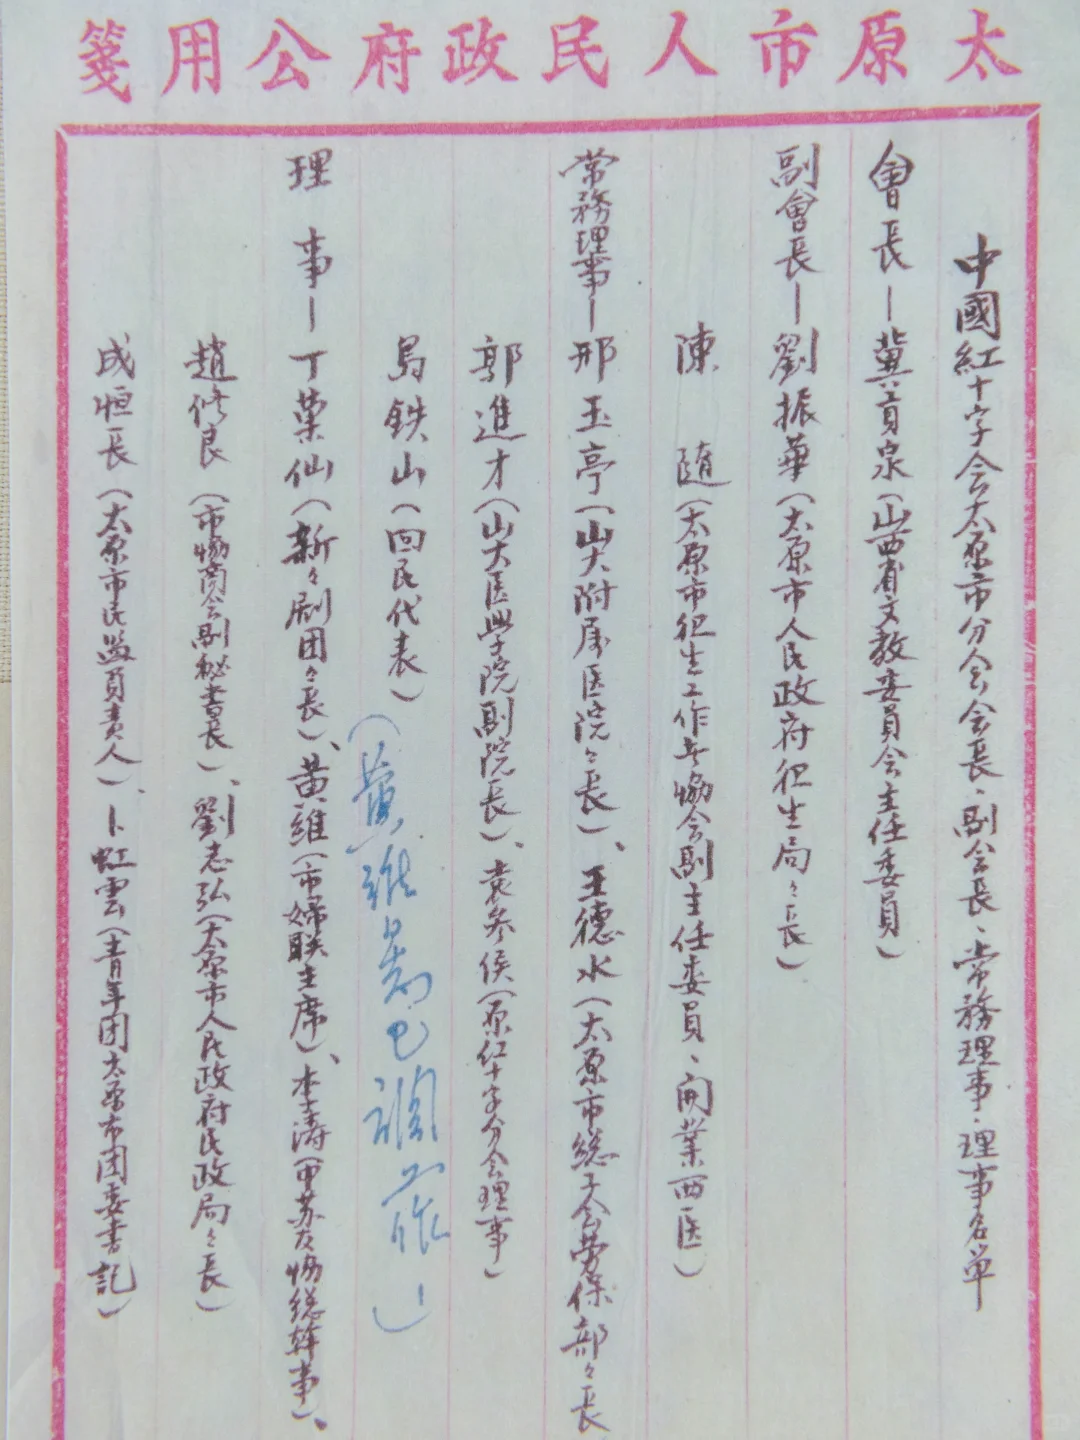 太原市人民政府公用箋
中國紅十字会太原市分会会長、副会長、常務理事、理事名单
會長—冀貢泉（山西省文教委員会主任委員）
副會長—劉振華（太原市人民政府卫生局々長）
陳　随（太原市卫生工作者協会副主任委員、開業西医）
常務理事—邢玉亭（山大附属医院々長）、王德水（太原市総工会劳保部々長
郭進才（山大医學院副院長）、袁参侯（原紅十字分会理事）
馬鉄山（回民代表）
（黄維 已調 ）
理　事—丁菓仙（新々剧团々長）、黄維（市婦联主席）、李涛（中苏友協総幹事）、
趙修良（市協商会副秘書長）、劉志弘（太原市人民政府民政局々長）
成恒長（太原市民盟負责人）、卜虹雲（青年团太原市团委書記）